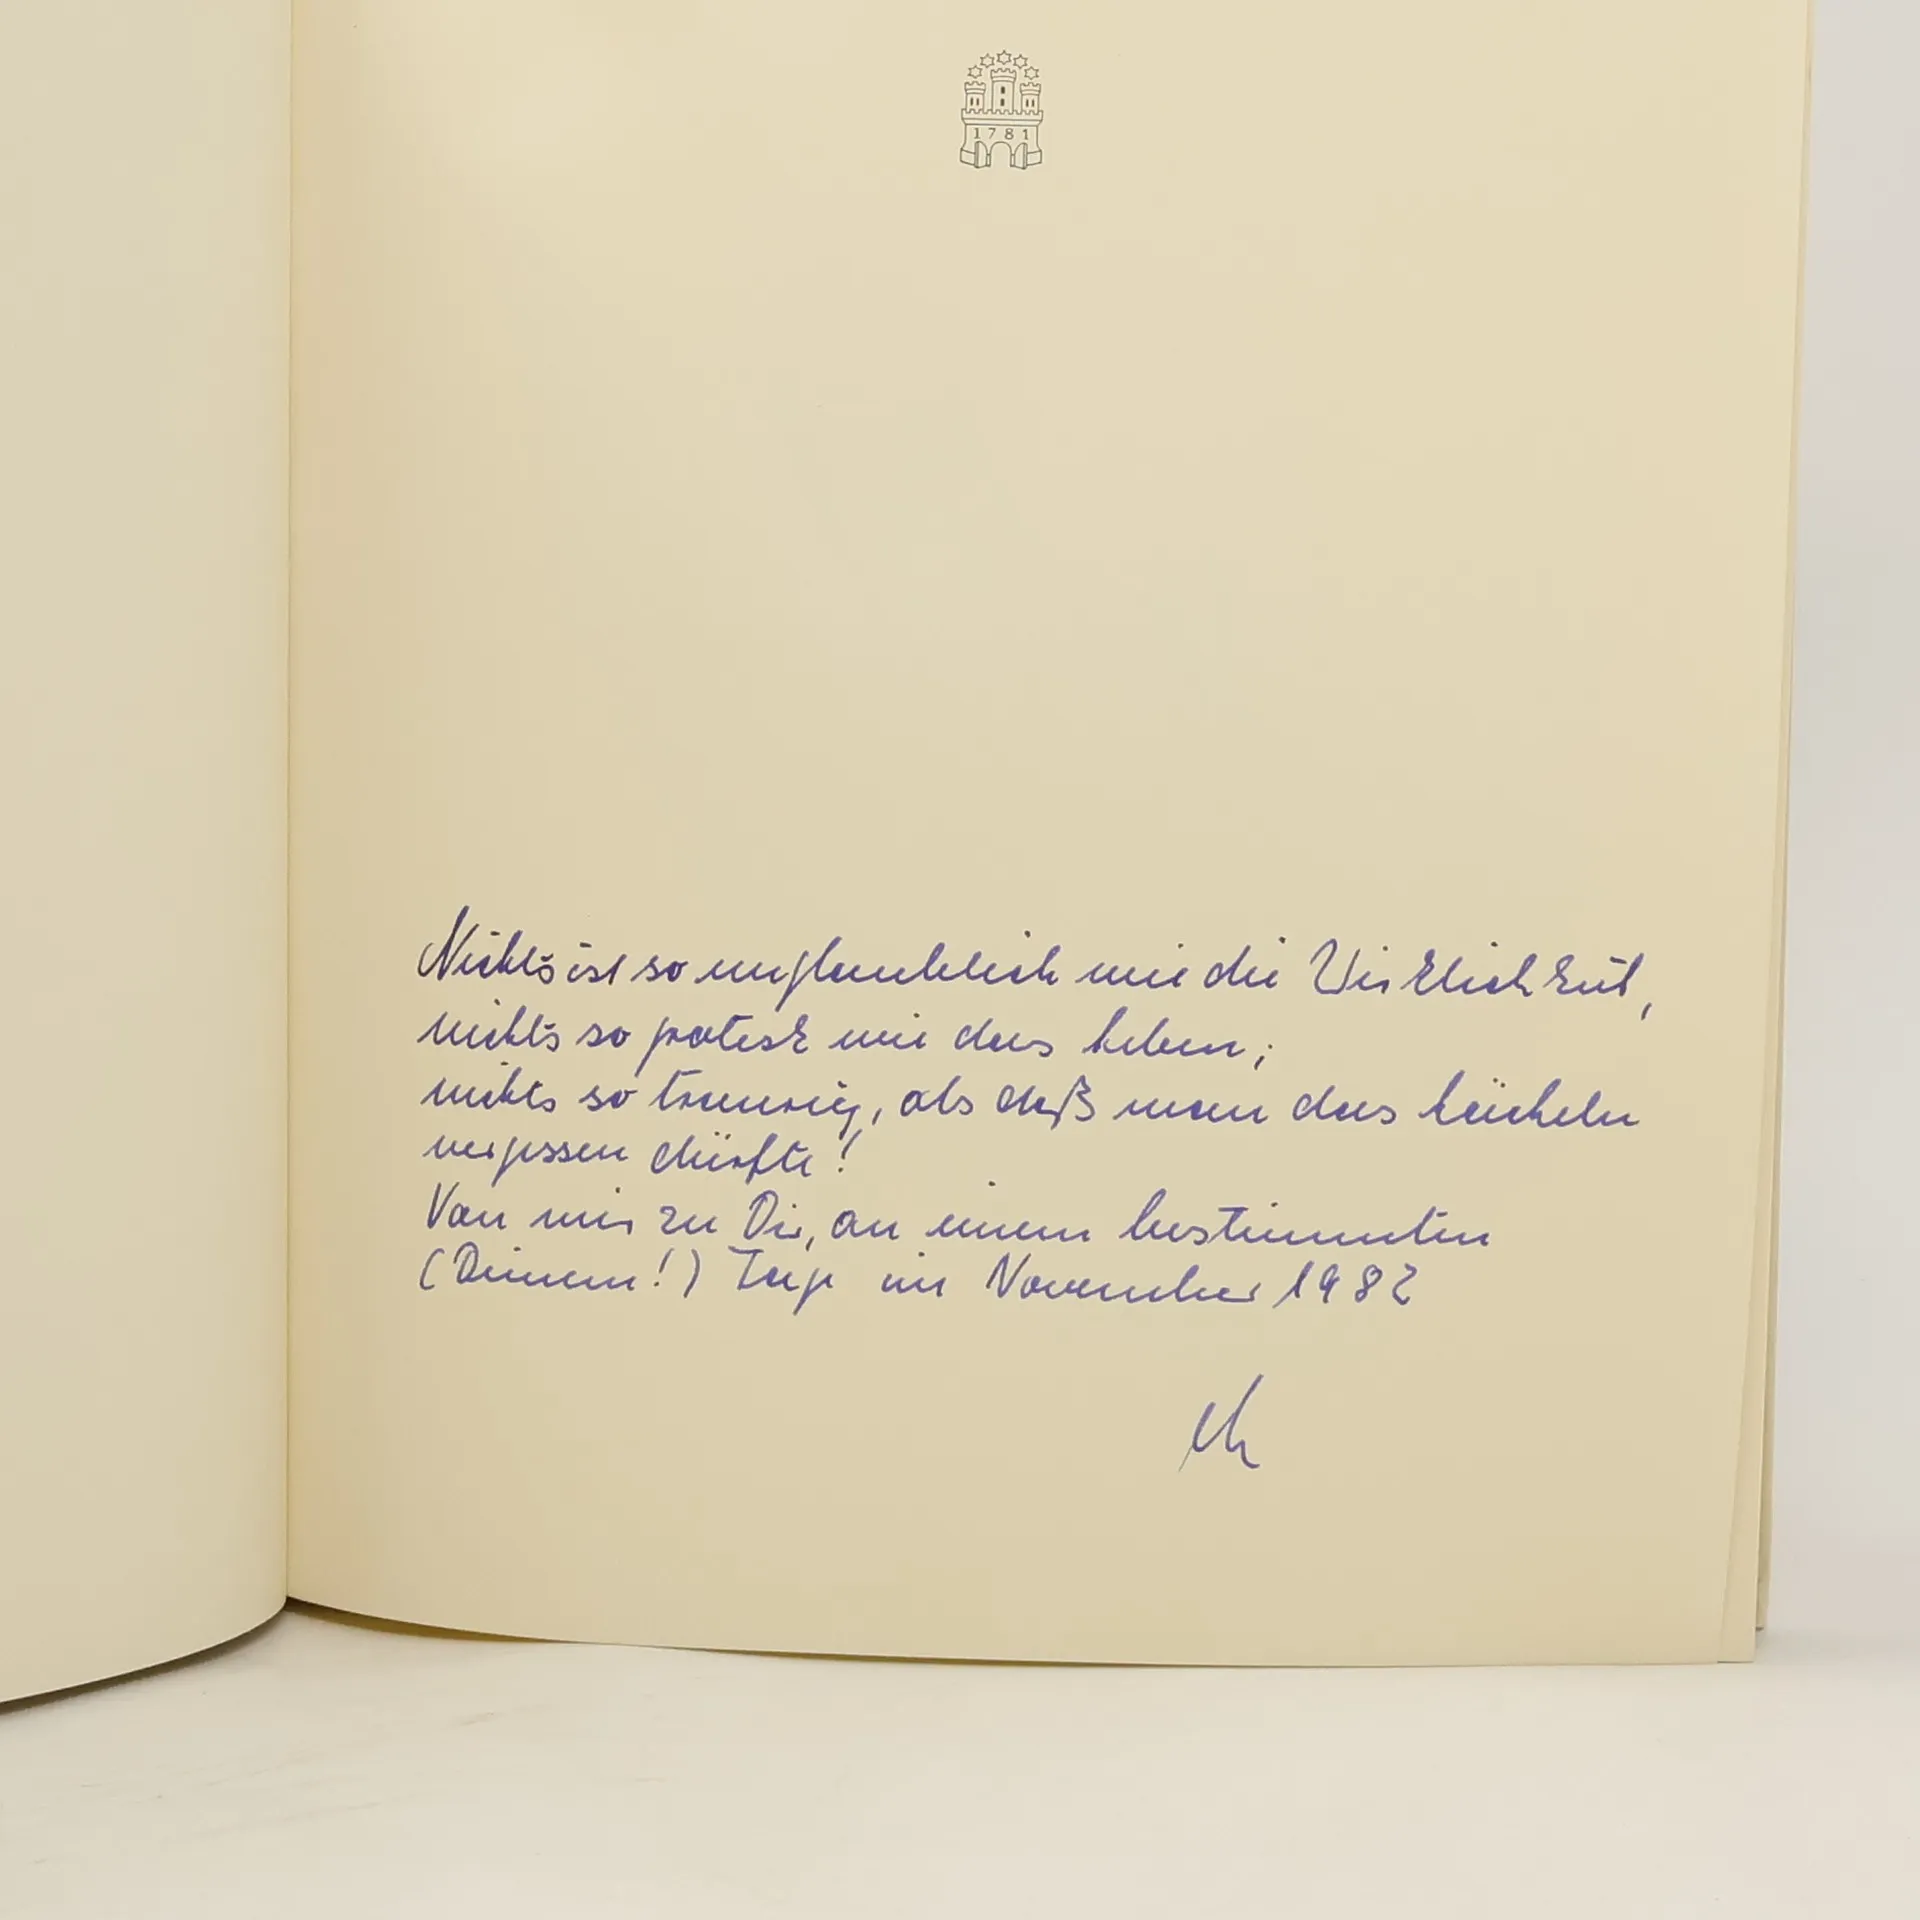 1781
Nichts ist so unglaublich wie die Wirklichkeit,
nichts so grotesk wie das Leben;
nichts so traurig, als daß man das Lächeln
vergessen dürfte!
Von mir zu Dir, an einem bestimmten
(Deinem!) Tag im November 1982